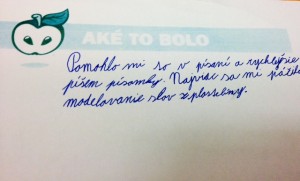 AKÉ TO BOLO
Pomohlo mi so v písaní a rychlejšie
píšem písomky. Najviac sa mi páčilo
modelovanie slov z plastelíny.